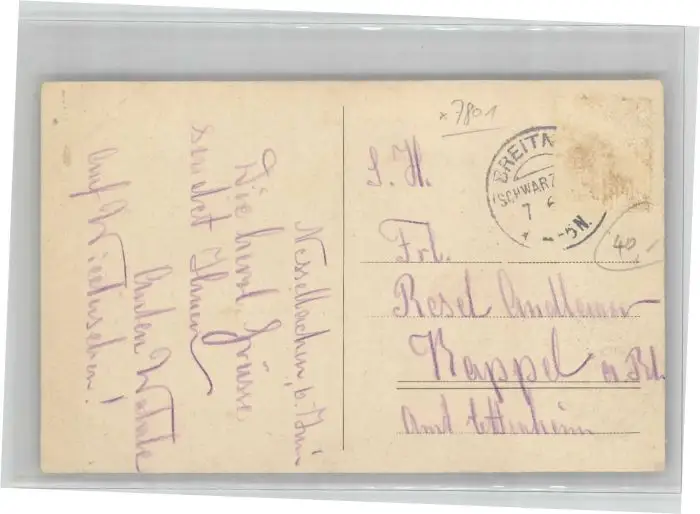 Nessellachen, 6. Juni
Die herzl. Grüsse
sendet Ihnen
Anton
Auf Wiedersehen!
*7801
BREITN
SCHWARZ
7 6
-5N.
40,-
S. H.
Frl.
Resel
Kappel a. Rh.
Amt Ettenheim